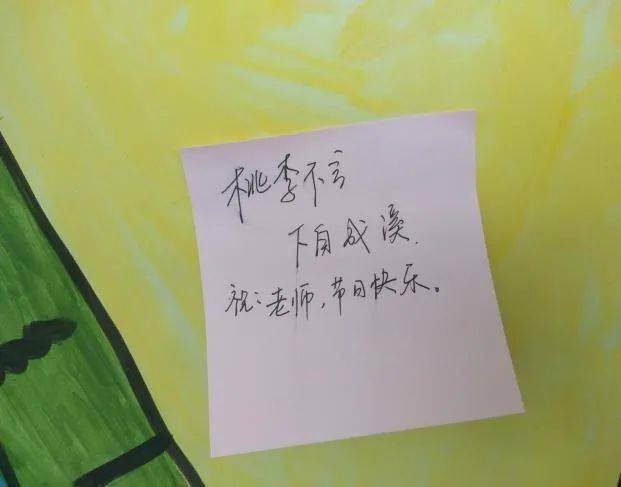 桃李不言
下自成溪.
祝:老师,节日快乐。